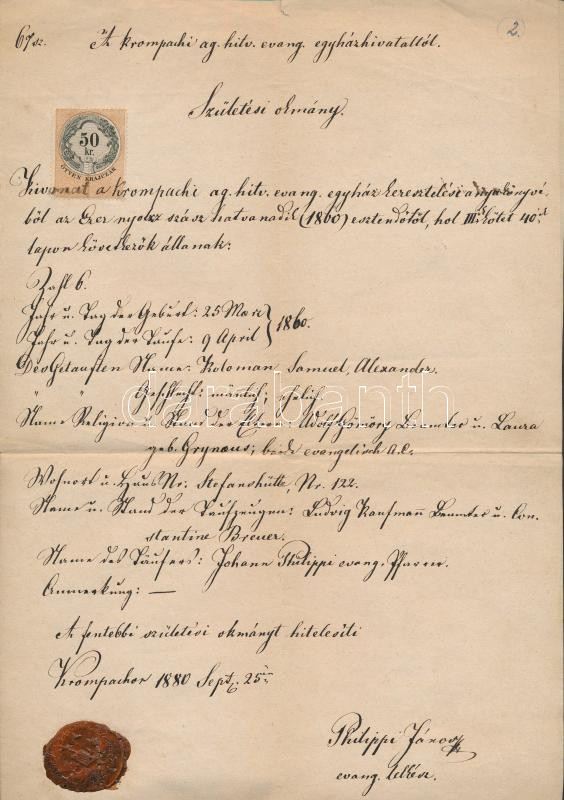 67 sz.
2.
Az krompachi ag. hitv. evang. egyházhivataltól.
Születési okmány.
50
kr.
ÖTVEN KRAJCZÁR
Kivonat a krompachi ag. hitv. evang. egyház keresztelési anyakönyvé-
ből az Ezer nyolcz száz hatvanadik (1860) esztendőtől, hol III kötet 40
lapon következők állanak:
Zahl 6.
Jahr u. Tag der Geburt: 25 März
1860.
Jahr u. Tag der Taufe: 9 April
Des Getauften Name: Koloman, Samuel, Alexander.
" " Geschlecht: männlich; ehelich.
Name Religion u. Stand der Eltern: Adolf Gömöry Beamter u. Laura
geb. Grynaeus; beide evangelisch A.C.
Wohnort u. Haus Nr: Stefanshütte, Nr. 122.
Name u. Stand der Taufzeugen: Ludvig Kaufmann Beamter u. Con-
stantine Breuer.
Name des Täufers: Johann Philippi evang. Pfarrer.
Anmerkung: —
A fentebbi születési okmányt hitelesíti
Krompachon 1880 Sept. 25
Philippi János
evang. lelkész.
darabanth